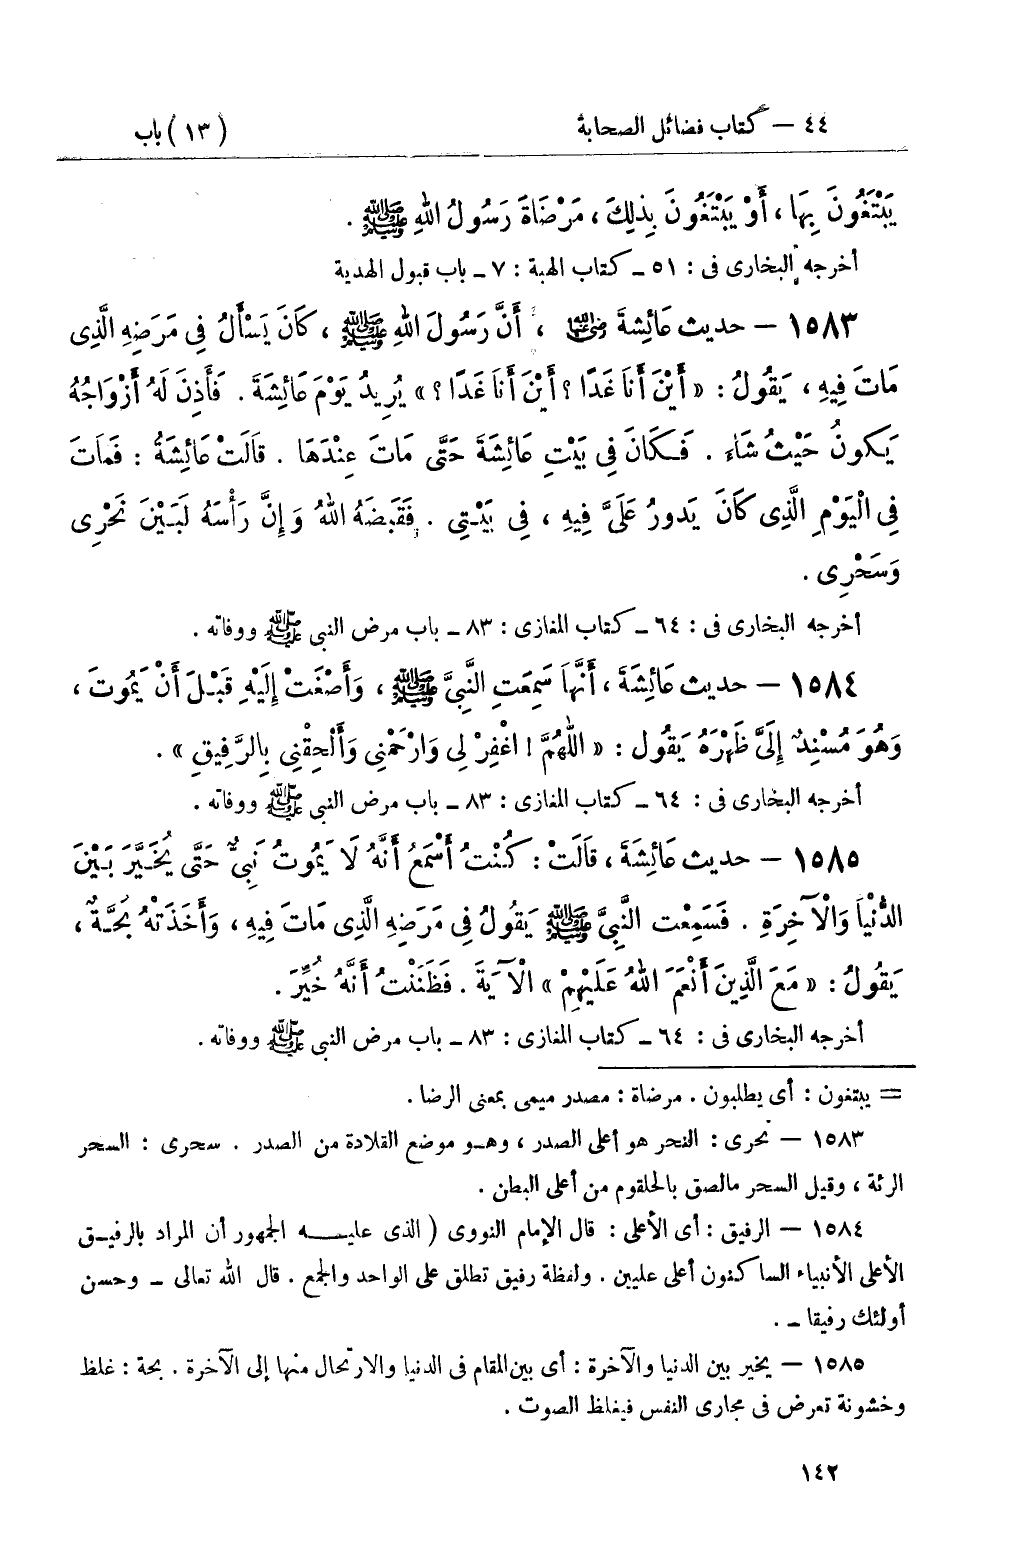 ٤٤ – كتاب فضائل الصحابة (١٣) باب
يَبْتَغُونَ بِهَا ، أَوْ يَبْتَغُونَ بِذلِكَ ، مَرْضَاةَ رَسُولُ اللهِ ﷺ .
أخرجه البخارى فى : ٥١ ــ كتاب الهبة : ٧ ــ باب قبول الهدية
١٥٨٣ – حديث عَائِشَةَ رضى الله عنها ، أَنَّ رَسُولَ اللهِ ﷺ ، كَانَ يَسْأَلُ فِى مَرَضِهِ الَّذِى
مَاتَ فِيهِ ، يَقُولُ : « أَيْنَ أَنَا غَدًا ؟ أَيْنَ أَنَا غَدًا ؟ » يُرِيدُ يَوْمَ عَائِشَةَ . فَأَذِنَ لَهُ أَزْوَاجُهُ
يَكونُ حَيْثُ شَاءَ . فَكَانَ فِى بَيْتِ عَائِشَةَ حَتَّى مَاتَ عِنْدَهَا . قَالَتْ عَائِشَةُ : فَمَاتَ
فِى الْيَوْمِ الَّذِى كَانَ يَدورُ عَلَىَّ فِيهِ ، فِى بَيْتِى . فَقَبَضَهُ اللهُ وَإِنَّ رَأْسَهُ لَبَيْنَ نَحْرِى
وَسَحْرِى .
أخرجه البخارى فى : ٦٤ ــ كتاب المغازى : ٨٣ ــ باب مرض النبى ﷺ ووفاته .
١٥٨٤ – حديث عَائِشَةَ ، أَنَّهَا سَمِعَتِ النَّبِىَّ ﷺ ، وَأَصْغَتْ إِلَيْهِ قَبْلَ أَنْ يَمُوتَ ،
وَهُوَ مُسْنِدٌ إِلَىَّ ظَهْرَهُ يَقُول : « اللهُمَّ ! اغْفِرْ لِى وَارْحَمْنِى وَأَلْحِقْنِى بِالرَّفِيقِ » .
أخرجه البخارى فى : ٦٤ ــ كتاب المغازى : ٨٣ ــ باب مرض النبى ﷺ ووفاته .
١٥٨٥ – حديث عَائِشَةَ ، قَالَتْ : كُنْتُ أَسْمَعُ أَنَّهُ لَا يَمُوتُ نَبِىٌّ حَتَّى يُخَيَّرَ بَيْنَ
الدُّنْيَا وَالْآخِرَةِ . فَسَمِعْت النَّبِىَّ ﷺ يَقُولُ فِى مَرَضِهِ الَّذِى مَاتَ فِيهِ ، وَأَخَذَتْهُ بُحَّةٌ ،
يَقُولُ : « مَعَ الَّذِينَ أَنْعَمَ اللهُ عَلَيْهِمْ » الْآيَةَ . فَظَنَنْتُ أَنَّهُ خُيِّرَ .
أخرجه البخارى فى : ٦٤ ــ كتاب المغازى : ٨٣ ــ باب مرض النبى ﷺ ووفاته .
= يبتغون : أى يطلبون . مرضاة : مصدر ميمى بمعنى الرضا .
١٥٨٣ – نحرى : النحر هو أعلى الصدر ، وهو موضع القلادة من الصدر . سحرى : السحر
الرئة ، وقيل السحر مالصق بالحلقوم من أعلى البطن .
١٥٨٤ – الرفيق : أى الأعلى : قال الإمام النووى ( الذى عليه الجمهور أن المراد بالرفيق
الأعلى الأنبياء الساكنون أعلى عليين . ولفظة رفيق تطلق على الواحد والجمع . قال الله تعالى ــ وحسن
أولئك رفيقا ــ .
١٥٨٥ – يخير بين الدنيا والآخرة : أى بين المقام فى الدنيا والارتحال منها إلى الآخرة . بحة : غلظ
وخشونة تعرض فى مجارى النفس فيغلظ الصوت .
١٤٢